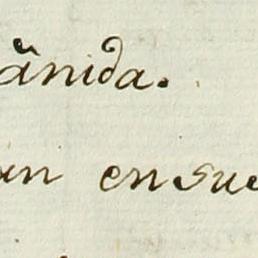 ãnida.
un ensue